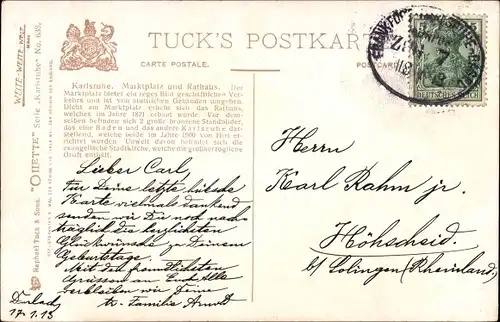 TUCK'S POSTKAR
CARTE POSTALE.
POSTCARD
"WEITE-WEITE-WELT"
Serie „Karlsruhe" No. 639.
Raphael Tuck & Sons. "OILETTE"
Karlsruhe. Marktplatz und Rathaus. Der
Marktplatz bietet ein reges Bild geschäftlichen Ver-
kehres und ist von stattlichen Gebäuden umgeben.
Dicht am Marktplatz erhebt sich das Rathaus,
welches im Jahre 1821 erbaut wurde. Vor dem-
selben befinden sich 2 große bronzene Standbilder,
das eine Baden und das andere Karlsruhe dar-
stellend, welche beide im Jahre 1900 von Hirt er-
richtet worden. Unweit davon befindet sich die
evangelische Stadtkirche, welche die großherzogliche
Gruft enthält.
DEUTSCHES REICH
Herrn
Karl Rahm jr.
Höhscheid.
b/ Solingen (Rheinland)
Lieber Carl,
Für Deine letzte hübsche
Karte vielmals dankend
senden wir Dir noch nach-
träglich die herzlichsten
Glückwünsche zu Deinem
Geburtstage.
Mit den freundlichsten
Grüssen an Euch Alle
verbleiben wir Deine
Familie Arnold
Durlach
17.1.13